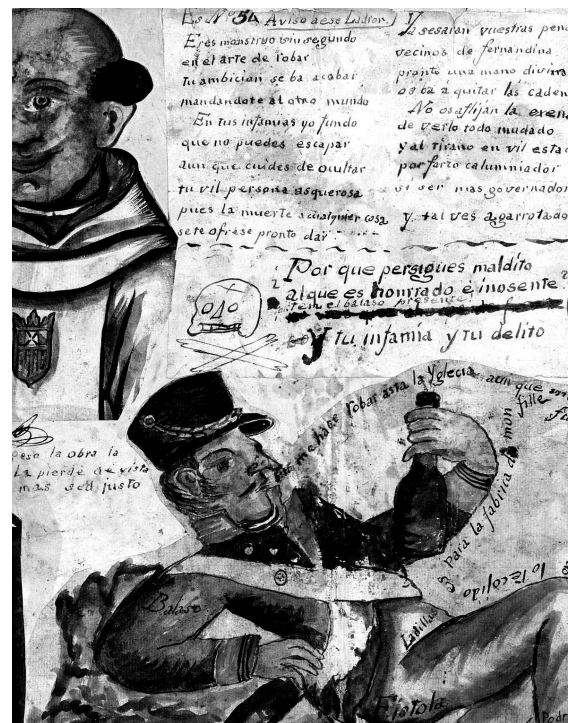 Es Nº 54 Aviso a ese Ladron.
Eres monstruo sin segundo
en el arte de robar
tu ambician se ba acabar
mandandote al otro mundo
En tus infamias yo fundo
que no puedes escapar
aun que cuides de ocultar
tu vil persona asquerosa
pues la muerte a cualquier cosa
se te ofrese pronto dar.
Ya sesaran vuestras pen
vecinos de fernandina
pronto una mano divina
os ba a quitar las caden
No os aflijan la exen
de verlo todo mudado
y al tirano en vil estad
por farto calumniador
si ser mas governador
y tal ves agarrotado
Por que persigues maldito
al que es honrrado e inosente
ten el balaso presente
y tu infamia y tu delito
peso la obra la
La pierde de vista
mas sed justo
me hase robar asta la Yglecia aun que
fille
es Para la fabrica de mon
Ladillas
lo Recojido
Balaso
Fistola